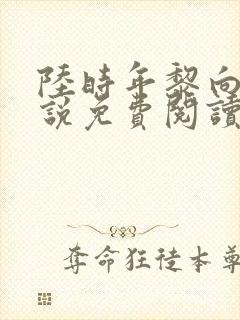 陸時年黎向
說免費閱讀
奪命狂徒本尊